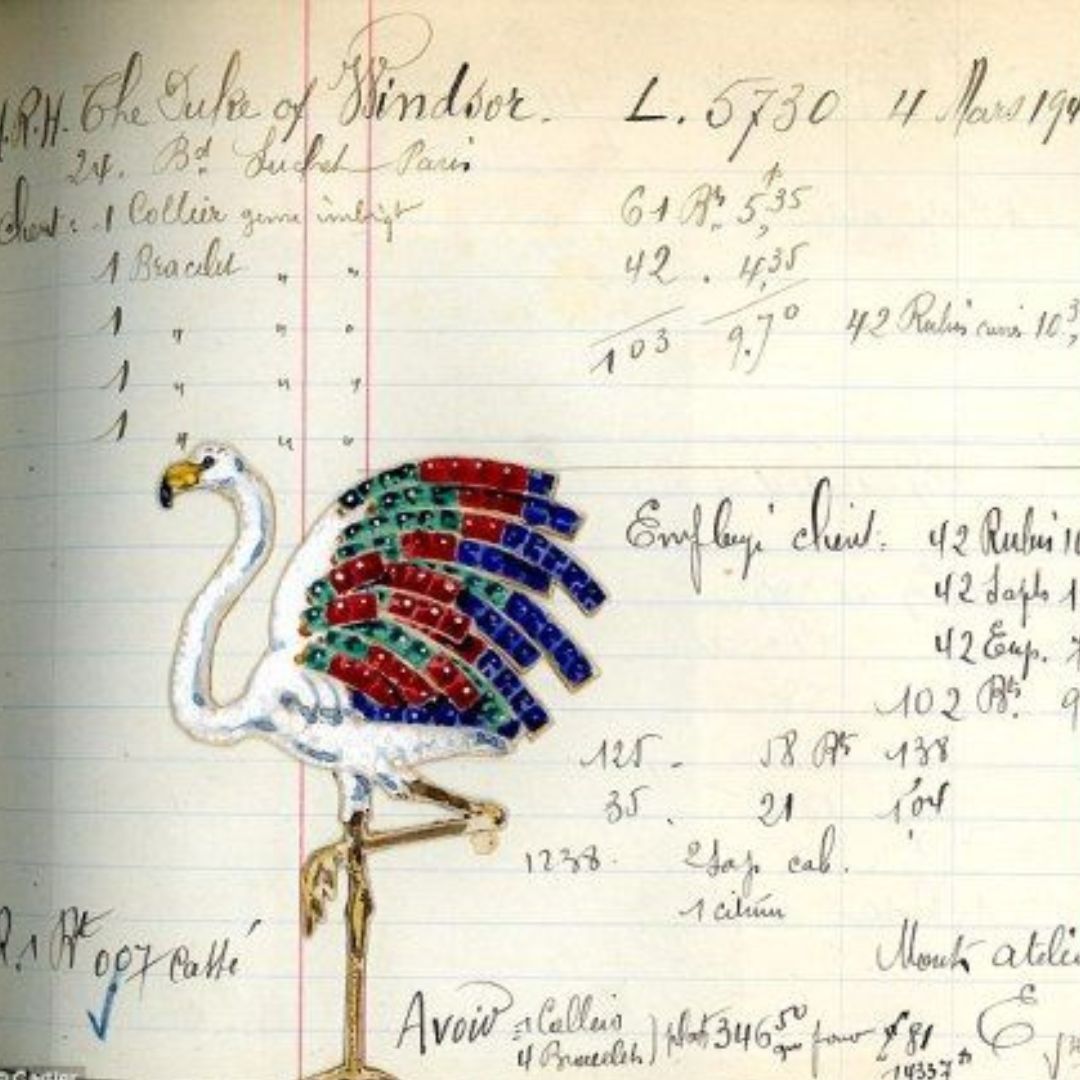 H.R.H. The Duke of Windsor. L. 5730 4 Mars 194
24. Bd Suchet Paris
Client : 1 Collier 61 Bts 5,35
1 Bracelet " " 42 . 4,35
1 " " " 103 9.70 42 Rubis 10,3
1 " " "
1 " " "
client : 42 Rubis 10
42 Saphs 1
42 Em. 7
102 Bts. 9
125 - 58 Bts 138
35 . 21 1,04
1238. 2 Sap. cab.
1 citrin
R. 1 Bt 007 cassé
Mont. atelie
Avoir = 1 Collier
4 Bracelets ) plat 346,50 pour £ 81
14337
Cartier